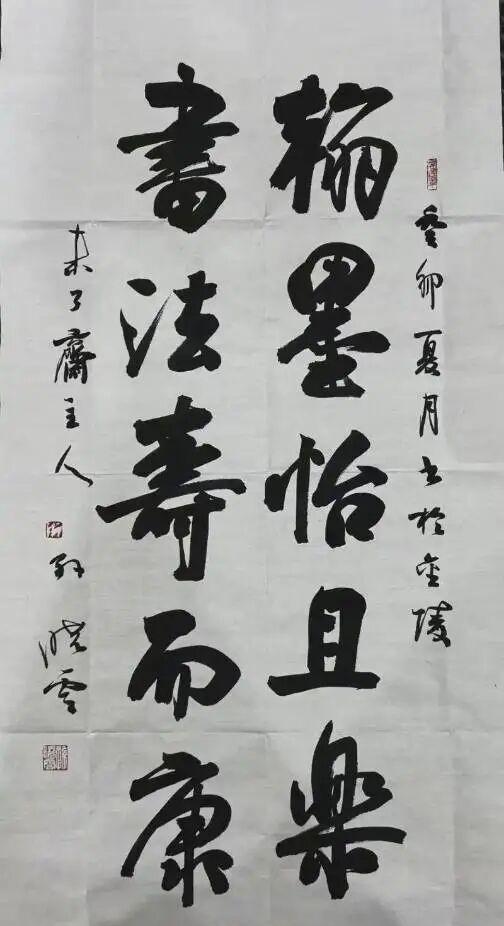 癸卯夏月书于金陵
翰墨怡且樂
書法壽而康
未了齋主人
孙晓雲